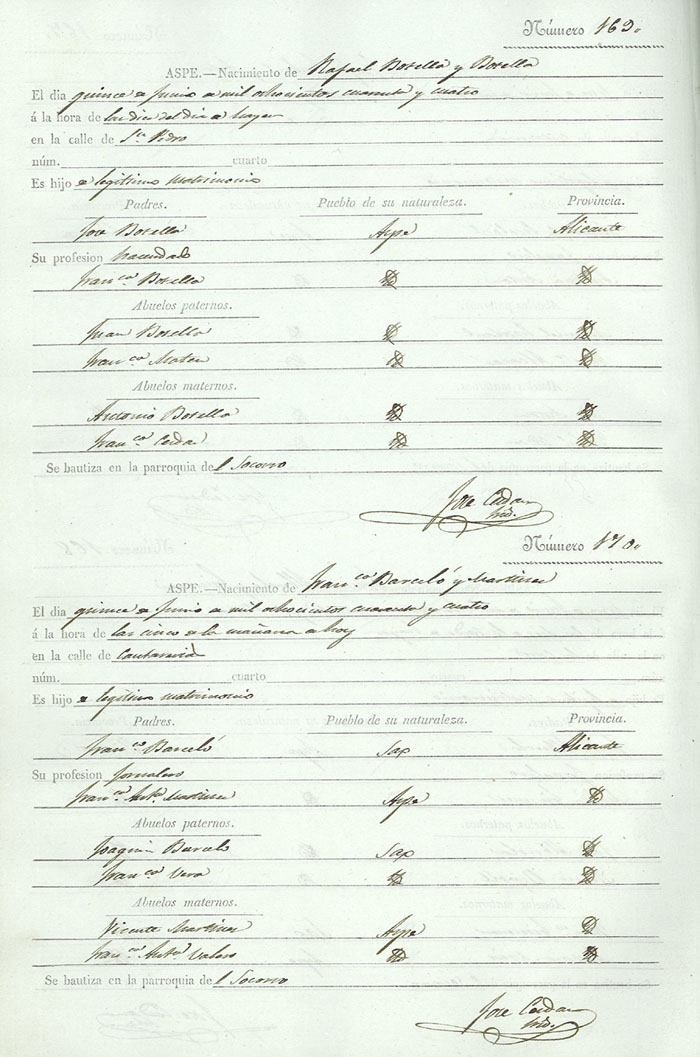 Número 169.
ASPE.—Nacimiento de Rafael Botella y Botella
El dia quince de Junio de mil ochocientos cuarenta y cuatro
á la hora de las diez del dia de hayer
en la calle de Sn Pedro
núm. cuarto
Es hijo de legitimo matrimonio
Padres. Pueblo de su naturaleza. Provincia.
Jose Botella Aspe Alicante
Su profesion hacendado
Franca Botella Id Id
Abuelos paternos.
Juan Botella Id Id
Franca Mateu Id Id
Abuelos maternos.
Antonio Botella Id Id
Franca Cerdan Id Id
Se bautiza en la parroquia del Socorro
Jose Cerdan
Número 170.
ASPE.—Nacimiento de Franco Barceló y Martinez
El dia quince de Junio de mil ochocientos cuarenta y cuatro
á la hora de las cinco de la mañana de hoy
en la calle de
núm. cuarto
Es hijo de legitimo matrimonio
Padres. Pueblo de su naturaleza. Provincia.
Franco Barceló Sax Alicante
Su profesion jornalero
Franca Anta Martinez Aspe Id
Abuelos paternos.
Joaquin Barceló Sax Id
Franca Vera Id Id
Abuelos maternos.
Vicente Martinez Aspe Id
Franca Anta Valero Id Id
Se bautiza en la parroquia del Socorro
Jose Cerdan